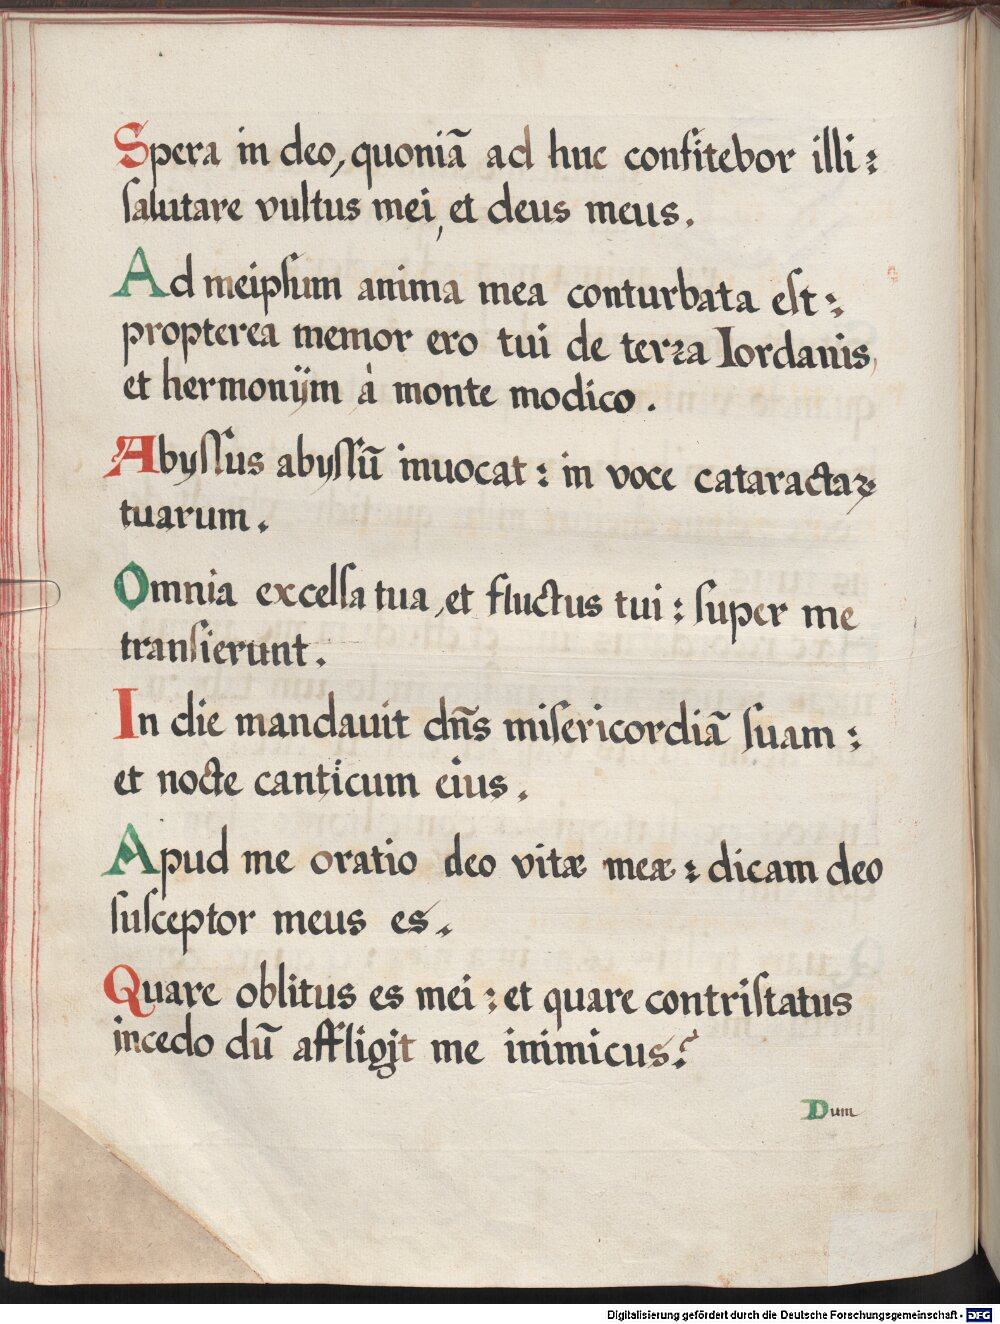 Spera in deo, quoniā ad huc confitebor illi:
ſalutare vultus mei, et deus meus.
Ad meipſum anima mea conturbata eſt:
propterea memor ero tui de terꝛa Iordanis,
et hermonijm à monte modico.
Abyſſus abyſſū inuocat: in voce cataractaꝝ
tuarum.
Omnia excelſa tua, et fluctus tui: ſuper me
tranſierunt.
In die mandauit dn̄s miſericordiā ſuam:
et nocte canticum eius.
Apud me oratio deo vitæ meæ: dicam deo
ſuſceptor meus es.
Quare oblitus es mei: et quare contriſtatus
incedo dū affligit me inimicus?
Dum
Digitalisierung gefördert durch die Deutsche Forschungsgemeinschaft - DFG